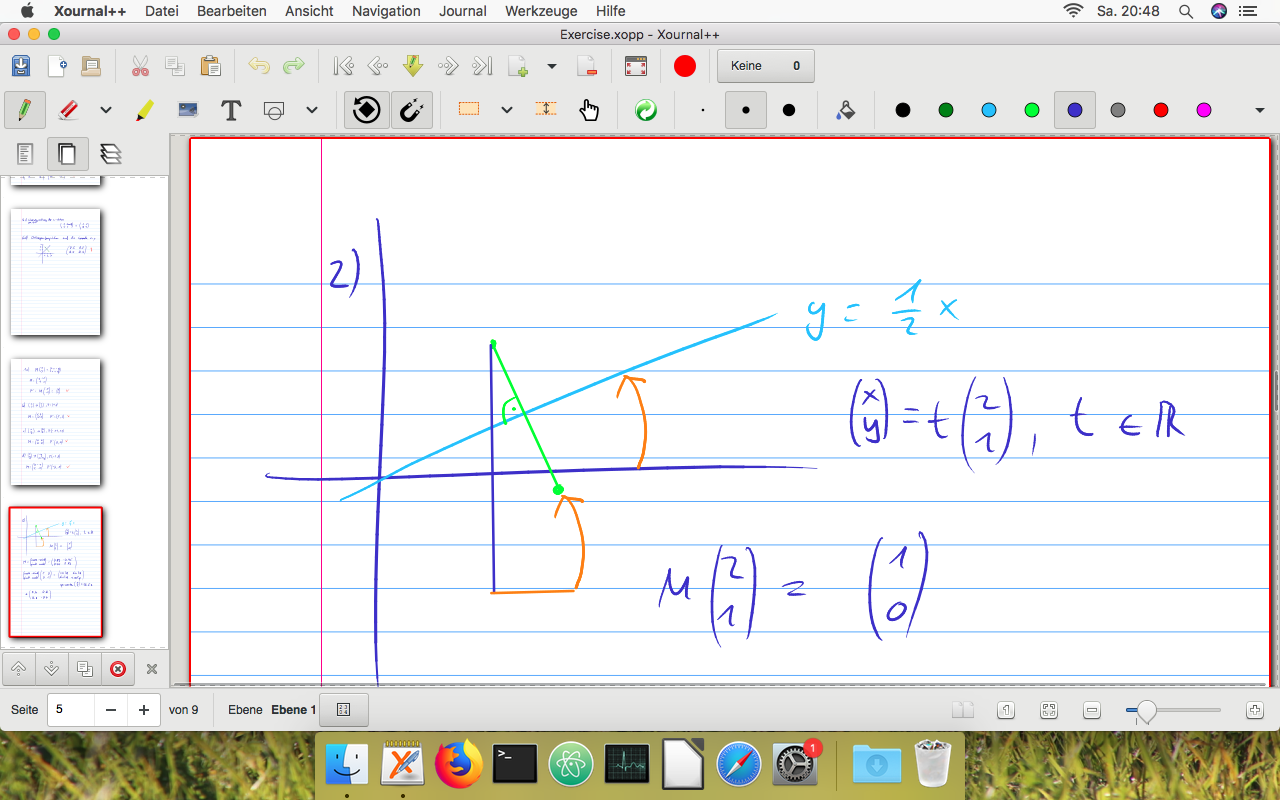 Xournal++ Datei Bearbeiten Ansicht Navigation Journal Werkzeuge Hilfe Sa. 20:48
Exercise.xopp - Xournal++
Keine 0
2)
y = 1/2 x
(x y) = t (2 1), t ∈ ℝ
M (2 1) = (1 0)
Seite 5 von 9 Ebene Ebene 1
1